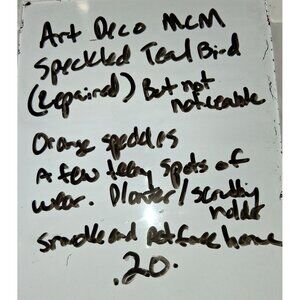 Art Deco MCM
Speckled Teal Bird
(repaired) But not
noticeable
Orange speckles
A few teeny spots of
wear. Planter/scrubby
holder
Smoke and Pet free home
.20.